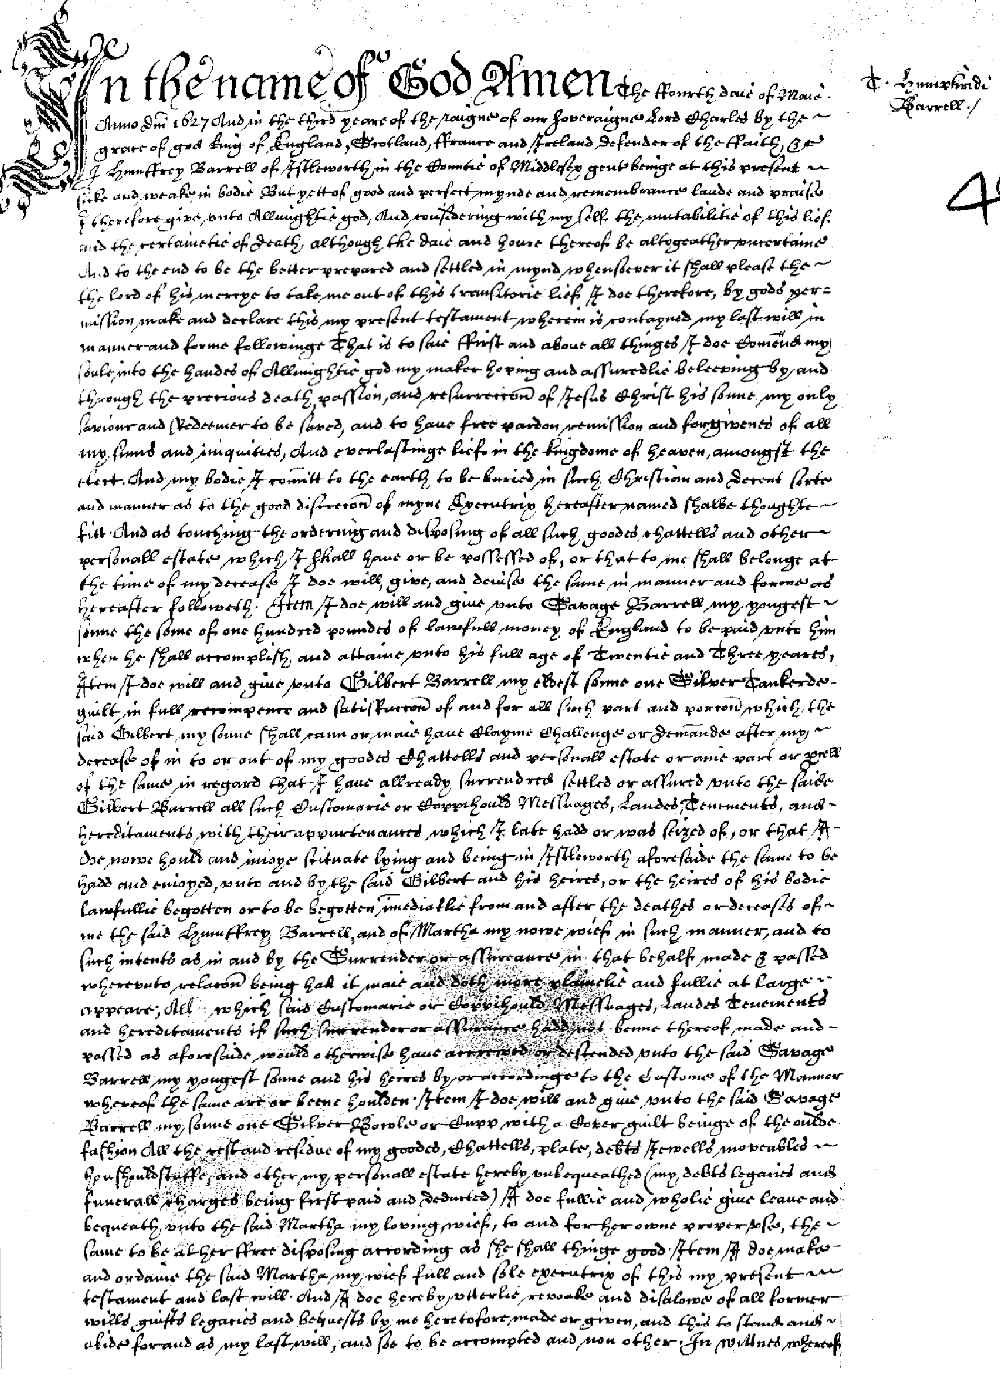 In the name of God Amen The ffourth daie of Maie
T. Humfridi
Barrell ./
Anno dm̄ 1627 And in the third yeare of the raigne of our soveraigne Lord Charles by the
grace of god king of England, Scotland, ffrance and Ireland defender of the ffaith, &c
I Humffrey Barrell of Istleworth in the Countie of Middlesex gent beinge at this present
sicke and weake in bodie But yett of good and perfect mynde and remembrance laude and praise
I therefore give vnto Allmightie god, And considering with my selfe the mutabilitie of this lief
and the certaintie of death, although the daie and houre thereof be altogeather vncertaine
And to the end to be the better prepared and settled in mynd whensoever it shall please the
the lord of his mercye to take me out of this transitorie lief I doe therefore, by gods per=
mission make and declare this my present testament wherein is contayned my last will in
manner and forme followinge That is to saie ffirst and above all thinges I doe Comēnd my
soule into the handes of Allmightie god my maker hoping and assuredlie beleeving by and
through the precious death passion, and resurreccōn of Jesus Christ his sonne my only
saviour and Redeemer to be saved, and to have free pardon remission and forgivenes of all
my sinns and iniquities, And everlastinge lief in the kingdome of heaven, amongst the
elect. And my bodie I comītt to the earth to be buried in such Christian and decent sorte
and manner as to the good discrecōn of myne Executrix hereafter named shalbe thought
fitt. And as touching the ordering and disposing of all such goodes chattells and other
personall estate which I shall have or be possessed of, or that to me shall belonge at
the time of my decease I doe will, give, and devise the same in manner and forme as
hereafter followeth. Item I doe will and give vnto Savage Barrell my yongest
sonne the some of one hundred poundes of lawfull money of England to be paid vnto him
when he shall accomplish, and attaine vnto his full age of Twentie and Three yeares,
Item I doe will and give vnto Gilbert Barrell my eldest sonne one Silver Tankerde
guilt in full recompence and satisfaccōn of and for all such part and porcōn which the
said Gilbert my sonne shall cann or maie have Clayme Challenge or demande after my
decease of in to or out of my goodes Chattells and personall estate or anie part or
of the same in regard that I have allready surrendred settled or assured vnto the saide
Gilbert Barrell all such Customarie or Coppihould Messuages, Landes Tenements, and
hereditaments with their appurtenances which I late hadd or was seized of, or that I
doe nowe hould and inioye scituate lying and being in Istleworth aforesaide the same to be
hadd and enioyed, vnto and by the said Gilbert and his heires, or the heires of his bodie
lawfullie begotten or to be begotten imēdiatlie from and after the deathes or deceases of
me the said Humffrey Barrell, and of Martha my nowe wief in such manner, and to
such intents as in and by the Surrender or assureance in that behalf made & passed
wherevnto relacōn being had it maie and doth more plainelie and fullie at large
appeare, All which said Customarie or Coppihould Messuages, Landes Tenements
and hereditaments if such surrender or assurance hadd not beene thereof made and
passed as aforesaide would otherwise have accrewed or descended vnto the said Savage
Barrell my yongest sonne and his heires by or accordinge to the Custome of the Mannor
whereof the same are or beene houlden. Item I doe will and give vnto the said Savage
Barrell my sonne one Silver Bowle or Cupp with a Cover guilt beinge of the oulde
fashion All the rest and residue of my goodes, Chattells, plate, debts Jewells moveables
houshouldstuffe, and other my personall estate hereby vnbequeathed (my debts legacies and
funerall charges being first paid and deducted) I doe fullie and wholie give leave and
bequeath vnto the said Martha my loving wief, to and for her owne proper vse, the
same to be at her ffree disposing according as she shall thinge good. Item I doe make
and ordaine the said Martha my wief full and sole executrix of this my present
testament and last will. And I doe hereby vtterlie revoake and disalowe of all former
wills guifts legacies and bequests by me heretofore made or given, and this to stand and
abide for and as my last will, and soe to be accompted and non other. In wittnes whereof